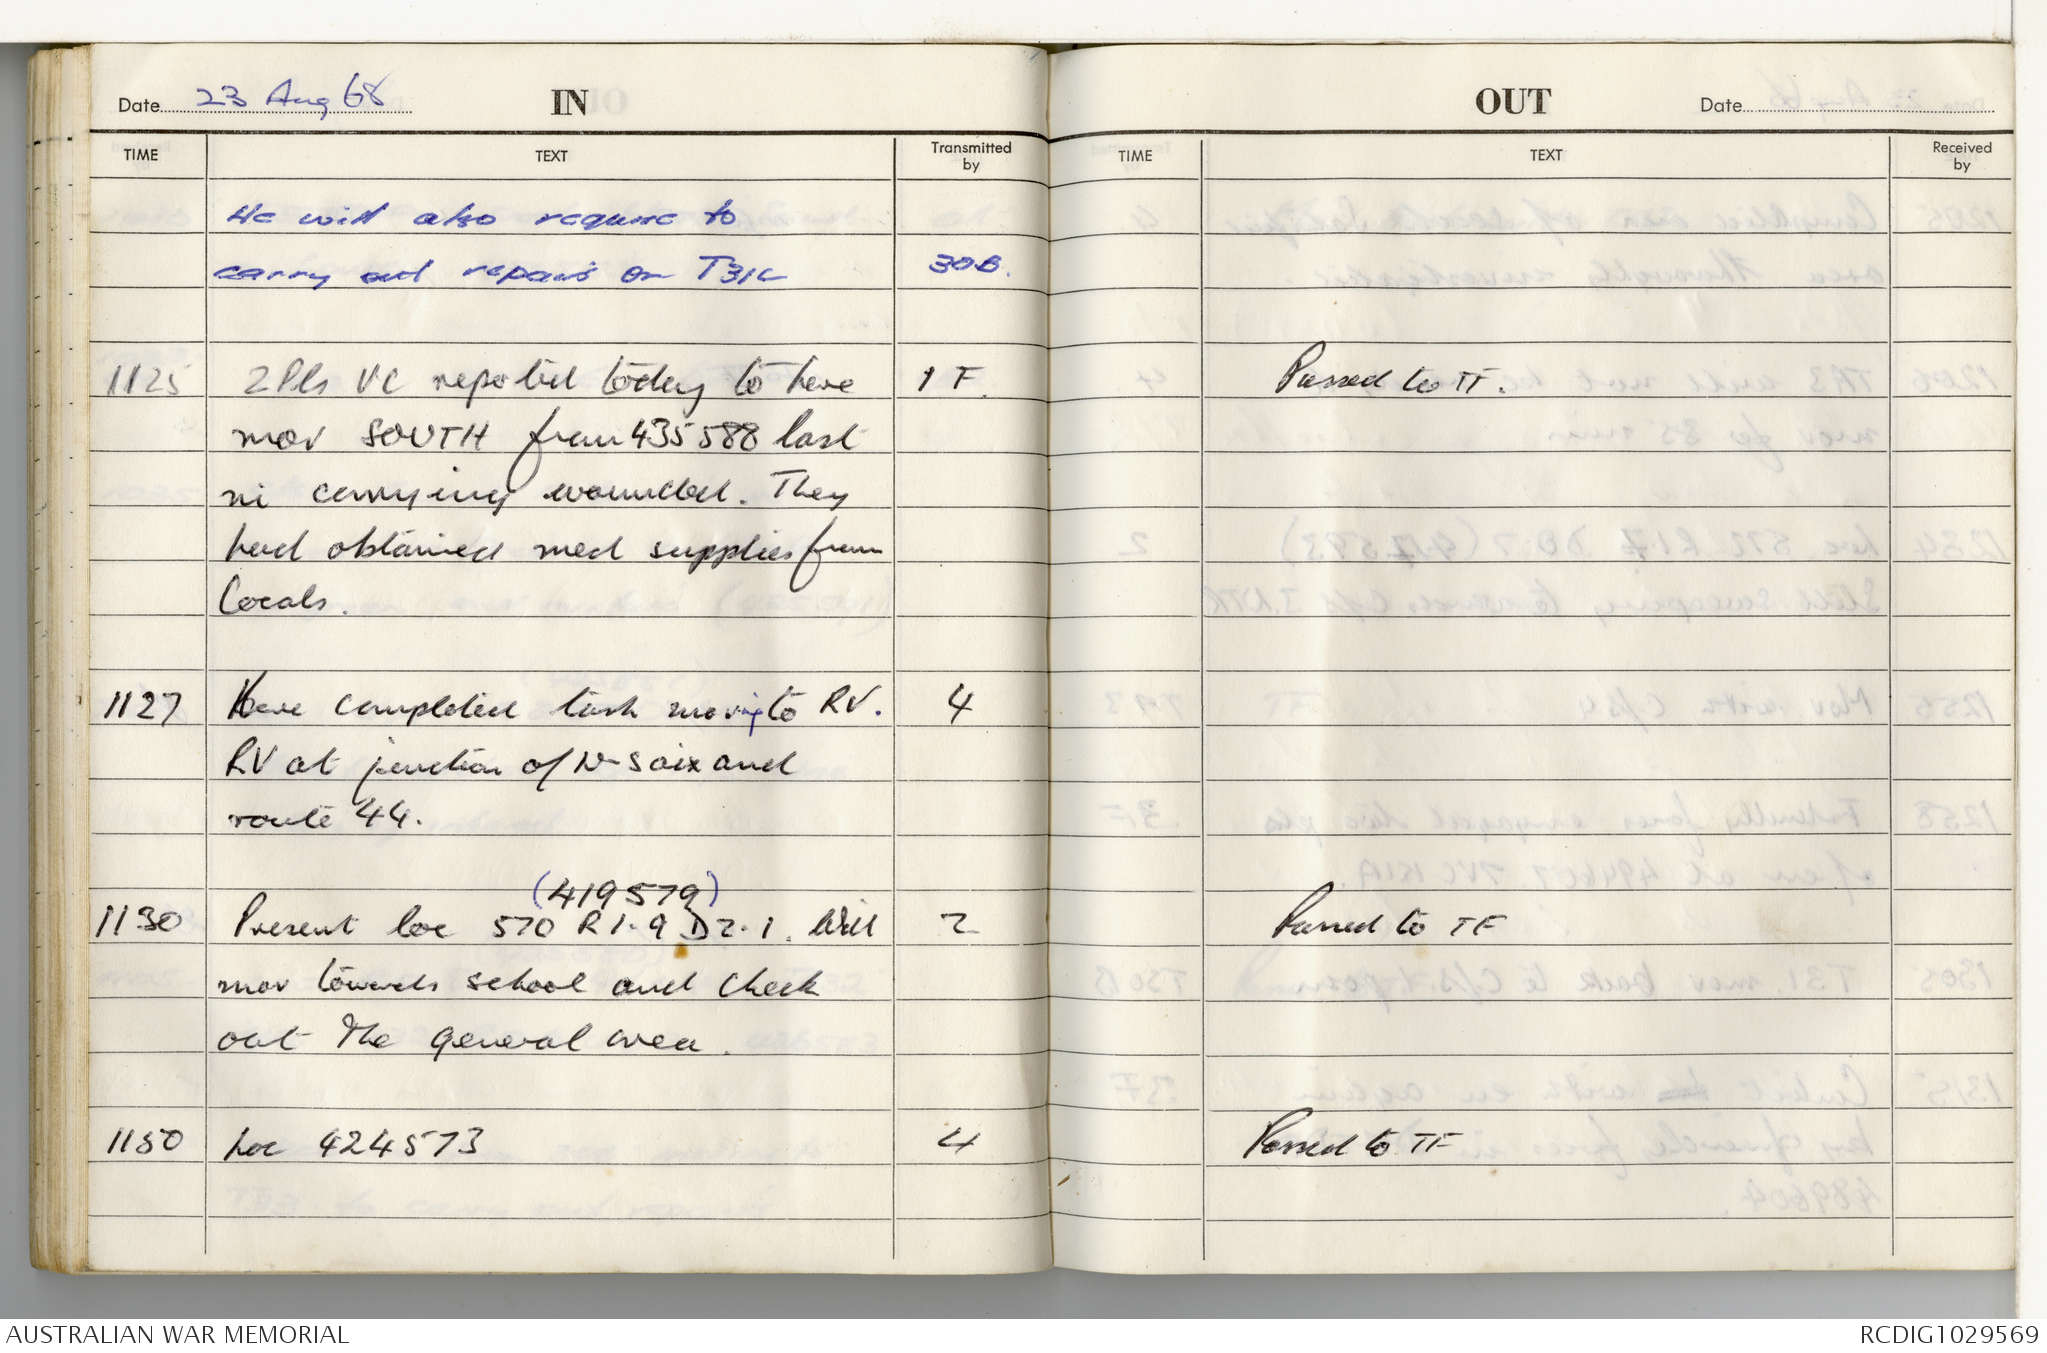 Date 23 Aug 68 IN
TIME TEXT Transmitted by
He will also require to
carry out repairs on T31C 30B.
1125 2 Pls VC reported today to have 1 F.
mov SOUTH from 435588 last
ni carrying wounded. They
had obtained med supplies from
locals.
1127 Have completed task moving to RV. 4
RV at junction of and
route 44.
(419579)
1130 Present loc 570 R1.9 D2.1. Will 2
mov towards school and check
out the general area.
1150 Loc 424573 4
OUT Date
TIME TEXT Received by
Passed to TF.
Passed to TF
Passed to TF
AUSTRALIAN WAR MEMORIAL RCDIG1029569